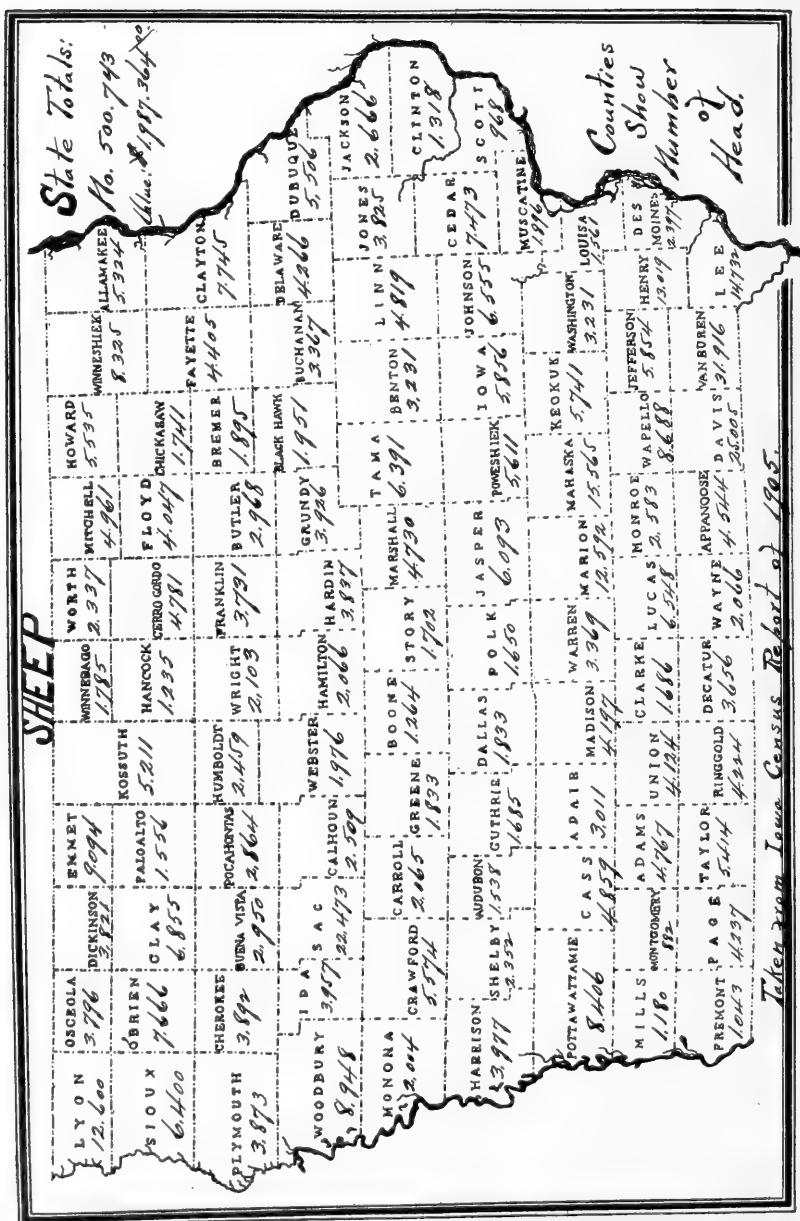 SHEEP
State Totals:
No. 500.743
Value: $1,987.364.00
LYON
12.600
OSCEOLA
3.796
DICKINSON
3.825
EMMET
9.094
KOSSUTH
5.211
WINNEBAGO
1.785
WORTH
2.337
MITCHELL
4.961
HOWARD
5.535
WINNESHIEK
8.325
ALLAMAKEE
5.324
SIOUX
6.400
O'BRIEN
7.666
CLAY
6.855
PALO ALTO
1.556
HANCOCK
1.235
CERRO GORDO
4.781
FLOYD
4.047
CHICKASAW
1.741
FAYETTE
4.405
CLAYTON
7.745
PLYMOUTH
3.873
CHEROKEE
3.892
BUENA VISTA
2.950
POCAHONTAS
2.864
HUMBOLDT
2.459
WRIGHT
2.103
FRANKLIN
3.731
BUTLER
2.968
BREMER
1.895
WOODBURY
8.948
IDA
3.957
SAC
22.473
CALHOUN
2.509
WEBSTER
1.976
HAMILTON
2.066
HARDIN
3.837
GRUNDY
3.926
BLACK HAWK
1.951
BUCHANAN
3.367
DELAWARE
4.266
DUBUQUE
5.506
MONONA
2.004
CRAWFORD
5.574
CARROLL
2.065
GREENE
1.833
BOONE
1.264
STORY
1.702
MARSHALL
4.730
TAMA
6.391
BENTON
3.231
LINN
4.819
JONES
3.825
JACKSON
2.666
HARRISON
3.977
SHELBY
2.352
AUDUBON
1.538
GUTHRIE
1.685
DALLAS
1.833
POLK
1.650
JASPER
6.093
POWESHIEK
5.611
IOWA
5.856
JOHNSON
6.555
CEDAR
7.473
CLINTON
1.318
SCOTT
968
MUSCATINE
1.896
POTTAWATTAMIE
8.406
CASS
4.859
ADAIR
3.011
MADISON
4.197
WARREN
3.369
MARION
12.592
MAHASKA
15.565
KEOKUK
5.741
WASHINGTON
3.231
LOUISA
1.561
MILLS
1.180
MONTGOMERY
892
ADAMS
4.767
UNION
4.124
CLARKE
1.686
LUCAS
6.548
MONROE
2.583
WAPELLO
8.688
JEFFERSON
5.854
HENRY
13.019
DES
MOINES
12.397
FREMONT
1.043
PAGE
4.237
TAYLOR
5.414
RINGGOLD
4.224
DECATUR
3.656
WAYNE
2.066
APPANOOSE
4.544
DAVIS
25.005
VAN BUREN
31.916
LEE
14.732
Counties
Show
Number
of
Head.
Taken from Iowa Census Report of 1905.